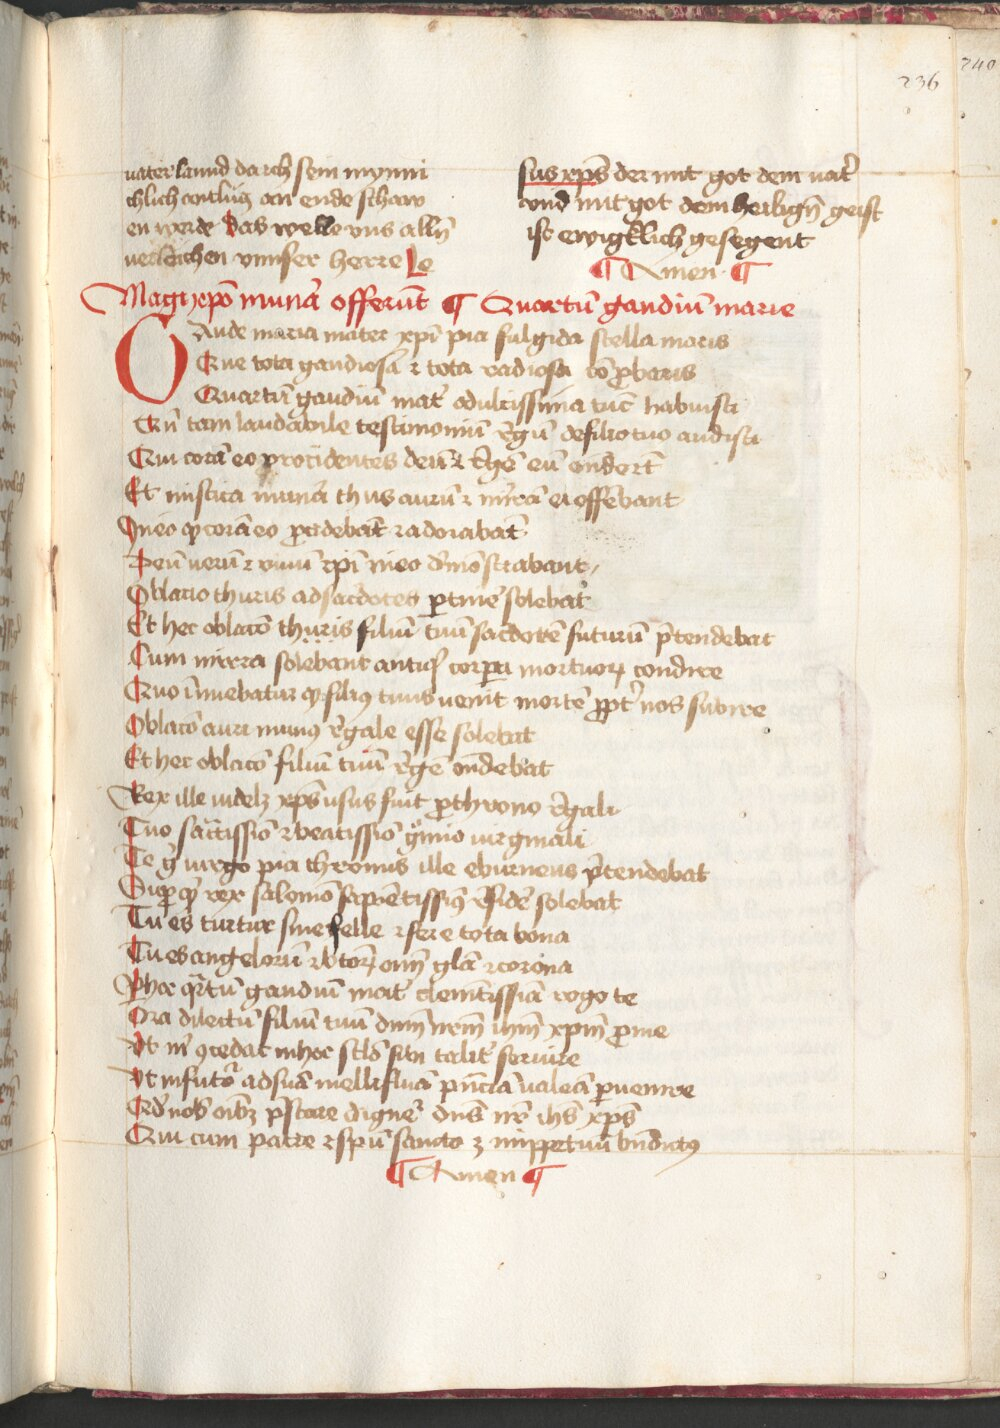 236
240
vaterlannd darch sein mynni
chlich antlucz an ende schaw
en werde Das welle vns allñ
verleichen vnnser herre Je
sus xp̄s der mit got dem vat̄
vnd mit got dem heiligñ geist
ist ewigklich gesegent
¶ Amen ¶
Magi xp̄o munā offerūt ¶ Quartū gaudiū marie
Gaude maria mater xp̄i pia fulgida stella maris
Que tota gaudiosa ⁊ tota radiosa cōprobaris
Quartū gaudiū mat̄ dulcissima tūc habuisti
Cū tam laudabile testimoniū regū de filio tuo audisti
Qui corā eo procidentes deū ⁊ regē eū ondert̄
Et mistica munā thus aurū ⁊ mirrā ei offebant
In eo qꝫ corā eo procidebāt ⁊ adorabāt
Deū verū ⁊ viuū xp̄i in eo demōstrabant
Oblatio thuris ad sacerdotes ptinē solebat
Et hec oblatō thuris filiū tuū sacerdotē futurū p̄tendebat
Cum mirra solebant antiq̄ corpa mortuoꝝ condire
Quo innuebatur qꝫ filiꝰ tuus venit mortē ppt̄ nos subire
Oblatō auri munꝰ regale esse solebat
Et hec oblatō filiū tuū regē ondebat
Rex ille videlꝫ xp̄s usus fuit pro throno regali
Tuo sāctissimo ⁊ beatissimo gremio virginali
Te g̊ virgo pia thronus ille eburneus p̄tendebat
Super quē rex salomō sapientissimꝰ residē solebat
Tu es turtur sine felle ⁊ fere tota bona
Tu es angeloꝝ ⁊ sctoꝝ oīm gl̄a ⁊ corona
P hoc quartū gaudiū mat̄ clemētissima rogo te
Ora dilectū filiū tuū dn̄m nr̄m ihm̄ xp̄m pro me
Ut m̄ ꝯcedat in hoc sc̄lo sibi talit̄ seruire
Ut in futuro ad suā mellifluā pn̄ciā valeā peruenire
Qd̄ nob̄ oībꝫ p̄stare dignet̄ dn̄s nr̄ ihs̄ xp̄s
Qui cum patre ⁊ spū sancto ⁊ in ppetuū bn̄dictꝰ
¶ Amen ¶